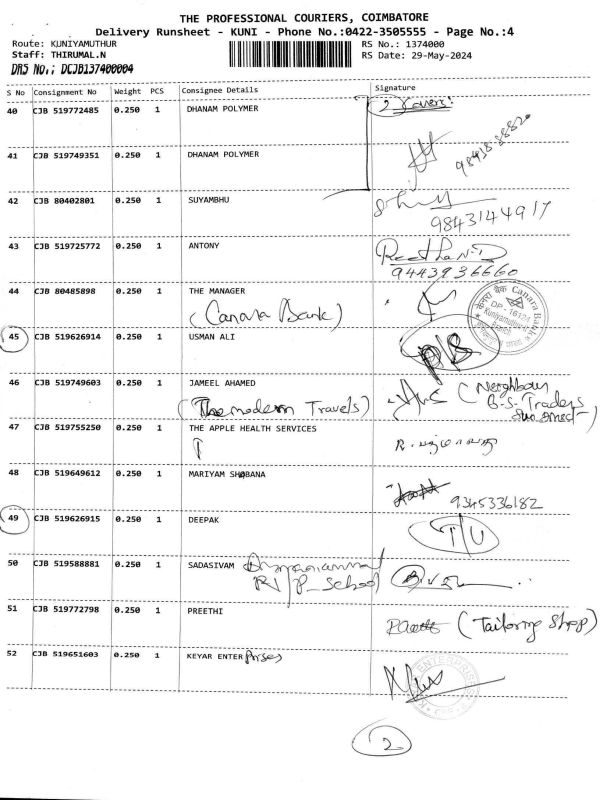 THE PROFESSIONAL COURIERS, COIMBATORE
Delivery Runsheet - KUNI - Phone No.:0422-3505555 - Page No.:4
Route: KUNIYAMUTHUR RS No.: 1374000
Staff: THIRUMAL.N RS Date: 29-May-2024
DRS No.: DCJB137400004
S No Consignment No Weight PCS Consignee Details Signature
40 CJB 519772485 0.250 1 DHANAM POLYMER 2 Covers
41 CJB 519749351 0.250 1 DHANAM POLYMER
42 CJB 80402801 0.250 1 SUYAMBHU
9843144917
43 CJB 519725772 0.250 1 ANTONY Reetha N.D
9443936660
44 CJB 80485898 0.250 1 THE MANAGER
(Canara Bank)
Canara Bank
DP - 16124
Kuniyamuthur-II
Branch
45 CJB 519626914 0.250 1 USMAN ALI P/B
46 CJB 519749603 0.250 1 JAMEEL AHAMED (Neighbour
(The modern Travels) B-S-Traders
47 CJB 519755250 0.250 1 THE APPLE HEALTH SERVICES
48 CJB 519649612 0.250 1 MARIYAM SHABANA
9345336182
49 CJB 519626915 0.250 1 DEEPAK T/U
50 CJB 519588881 0.250 1 SADASIVAM
School
51 CJB 519772798 0.250 1 PREETHI (Tailoring Shop)
52 CJB 519651603 0.250 1 KEYAR ENTERPrises
ENTERPRISES
2